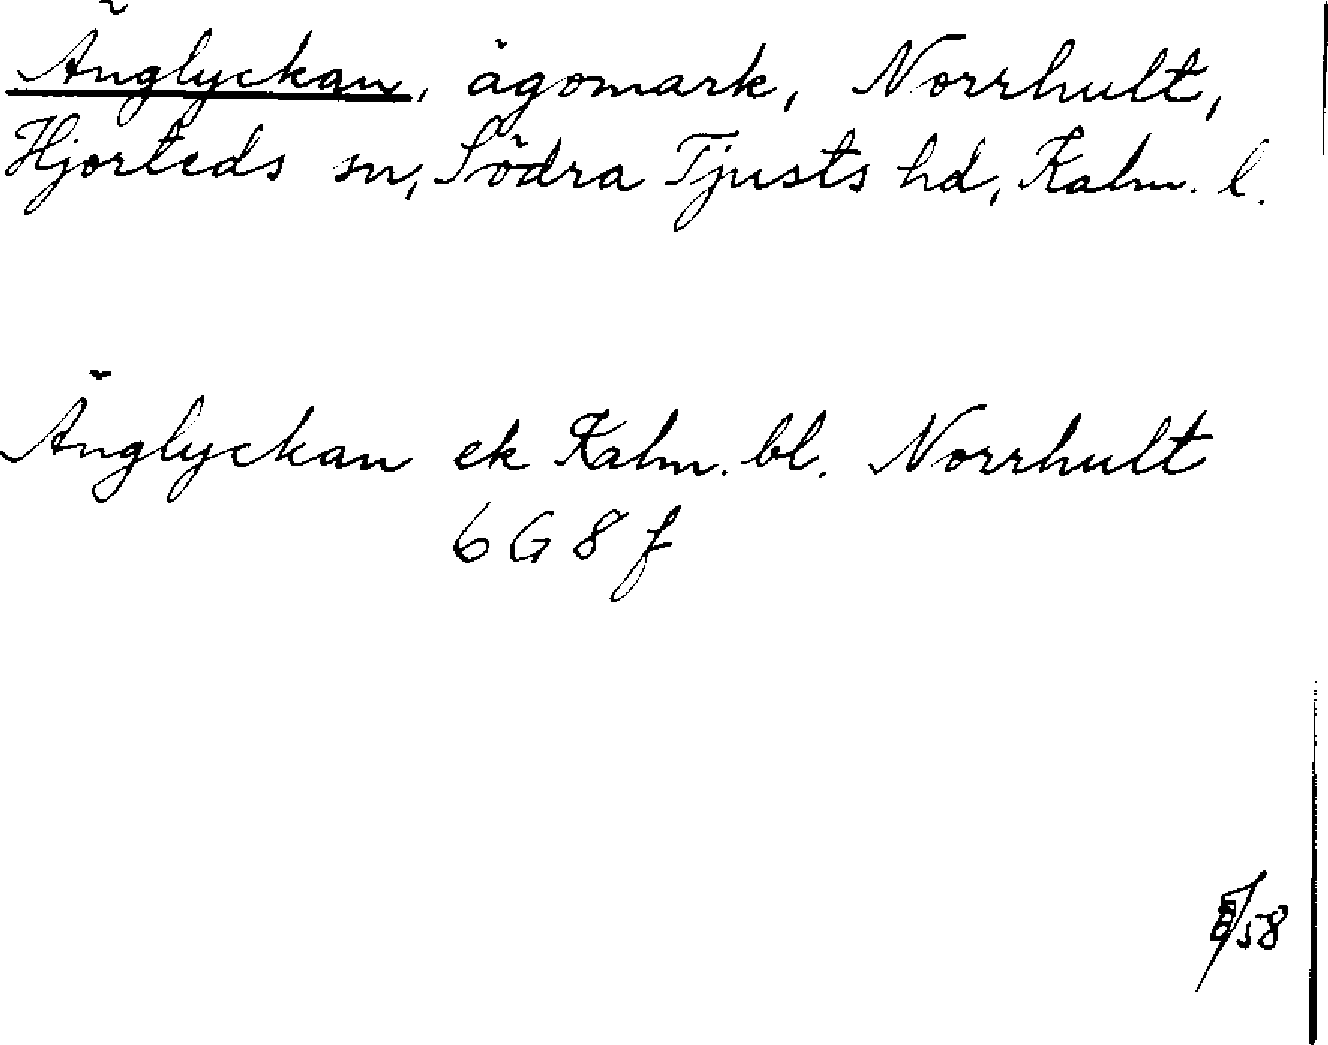 Änglyckan, ägomark, Norrhult,
Hjorteds sn, Södra Tjusts hd, Kalm. l.
Änglyckan ek Kalm. bl. Norrhult
6 G 8 f
/58